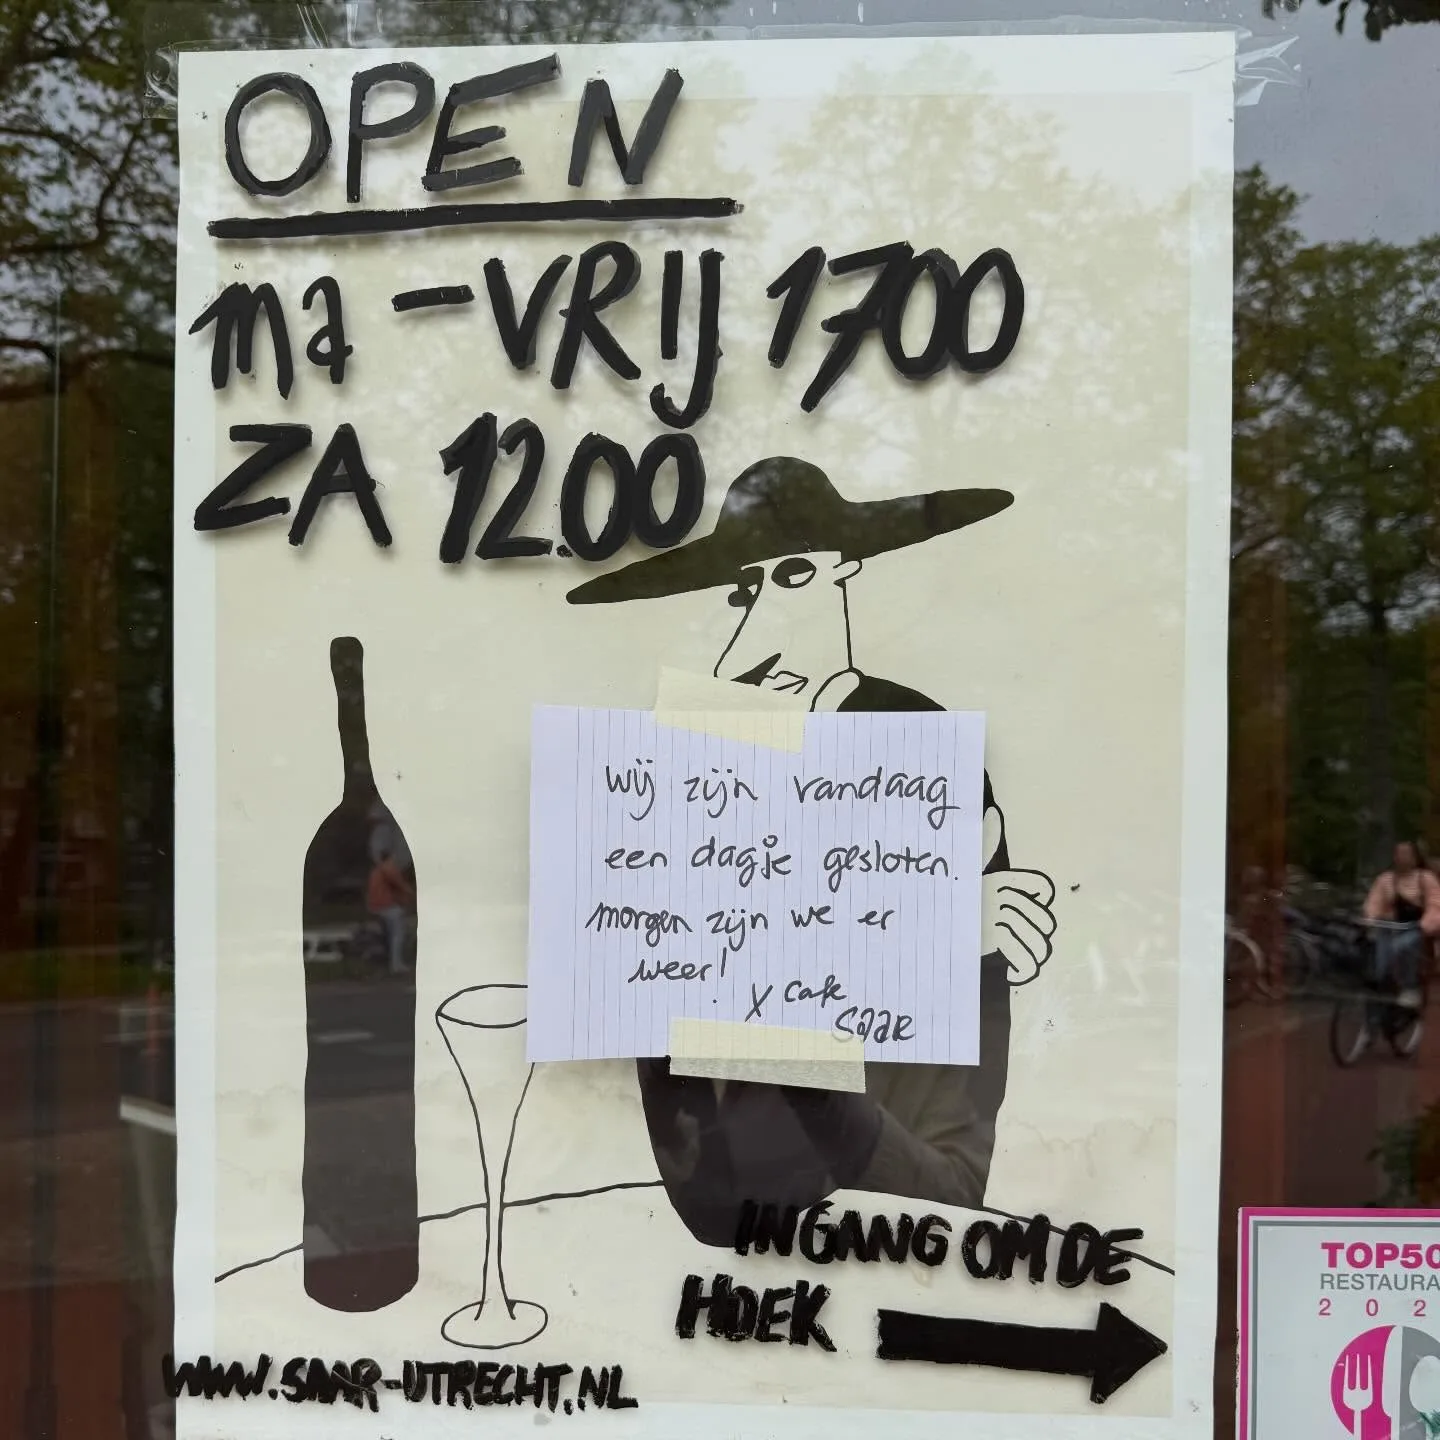 OPEN
ma - VRIJ 1700
ZA 12.00
wij zijn vandaag
een dagje gesloten.
morgen zijn we er
weer!
X cafe
SAAR
INGANG OM DE
HOEK
WWW.SAAR-UTRECHT.NL
TOP50
RESTAURA
2 0 2